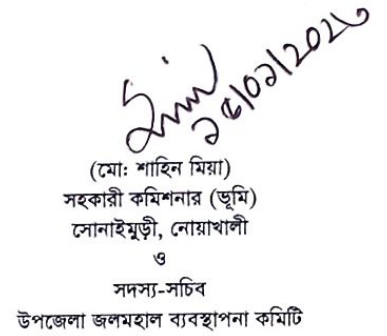 (মো: শাহিন মিয়া)
সহকারী কমিশনার (ভূমি)
সোনাইমুড়ী, নোয়াখালী
ও
সদস্য-সচিব
উপজেলা জলমহাল ব্যবস্থাপনা কমিটি